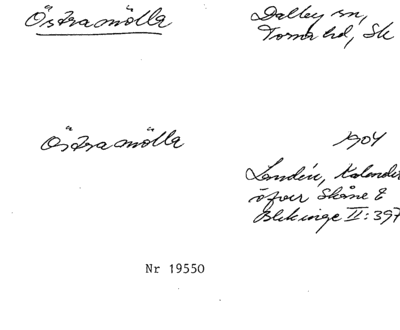 Östramölla
Dalby sn,
Torna hd, Sk
Östramölla
1904
Lundén, Kalender
öfver Skåne &
Blekinge II: 397
Nr 19550